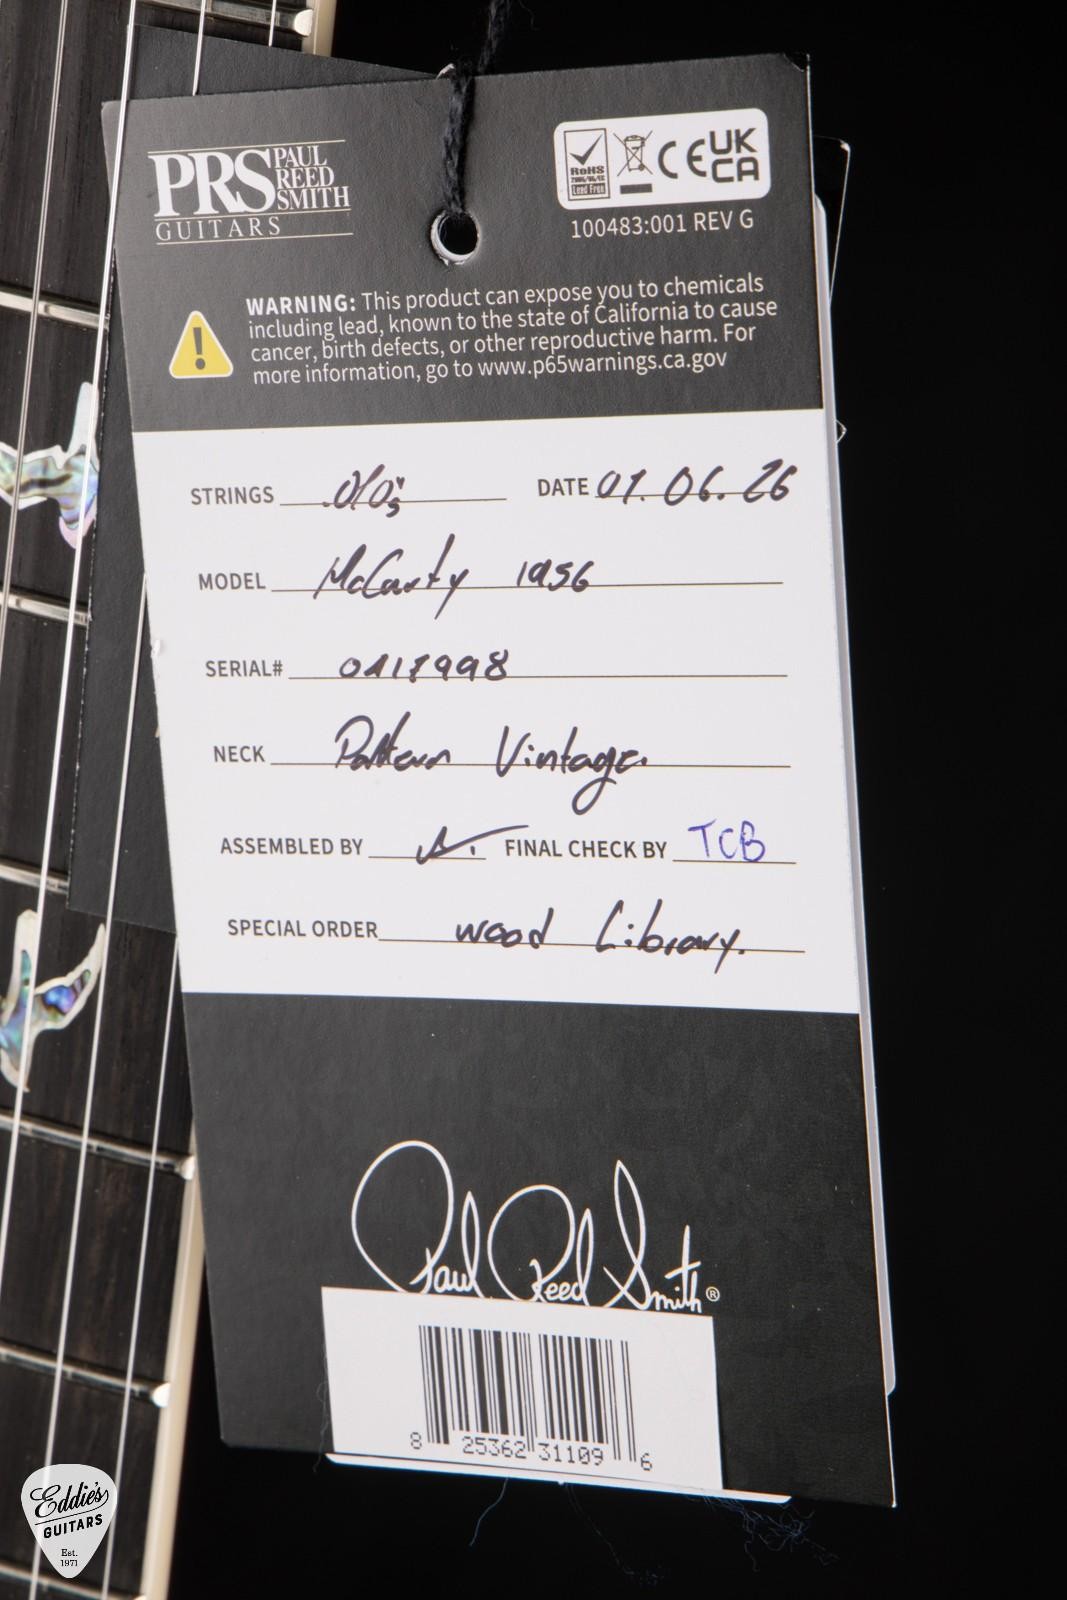 PRS PAUL REED SMITH
GUITARS
RoHS
2006/95/EC
Lead Free
CE UK CA
100483:001 REV G
WARNING: This product can expose you to chemicals
including lead, known to the state of California to cause
cancer, birth defects, or other reproductive harm. For
more information, go to www.p65warnings.ca.gov
STRINGS .010s DATE 01.06.26
MODEL McCarty 1956
SERIAL# 0417998
NECK Pattern Vintage.
ASSEMBLED BY FINAL CHECK BY TCB
SPECIAL ORDER Wood Library.
Paul Reed Smith®
8 25362 31109 6
Eddie's
GUITARS
Est.
1971